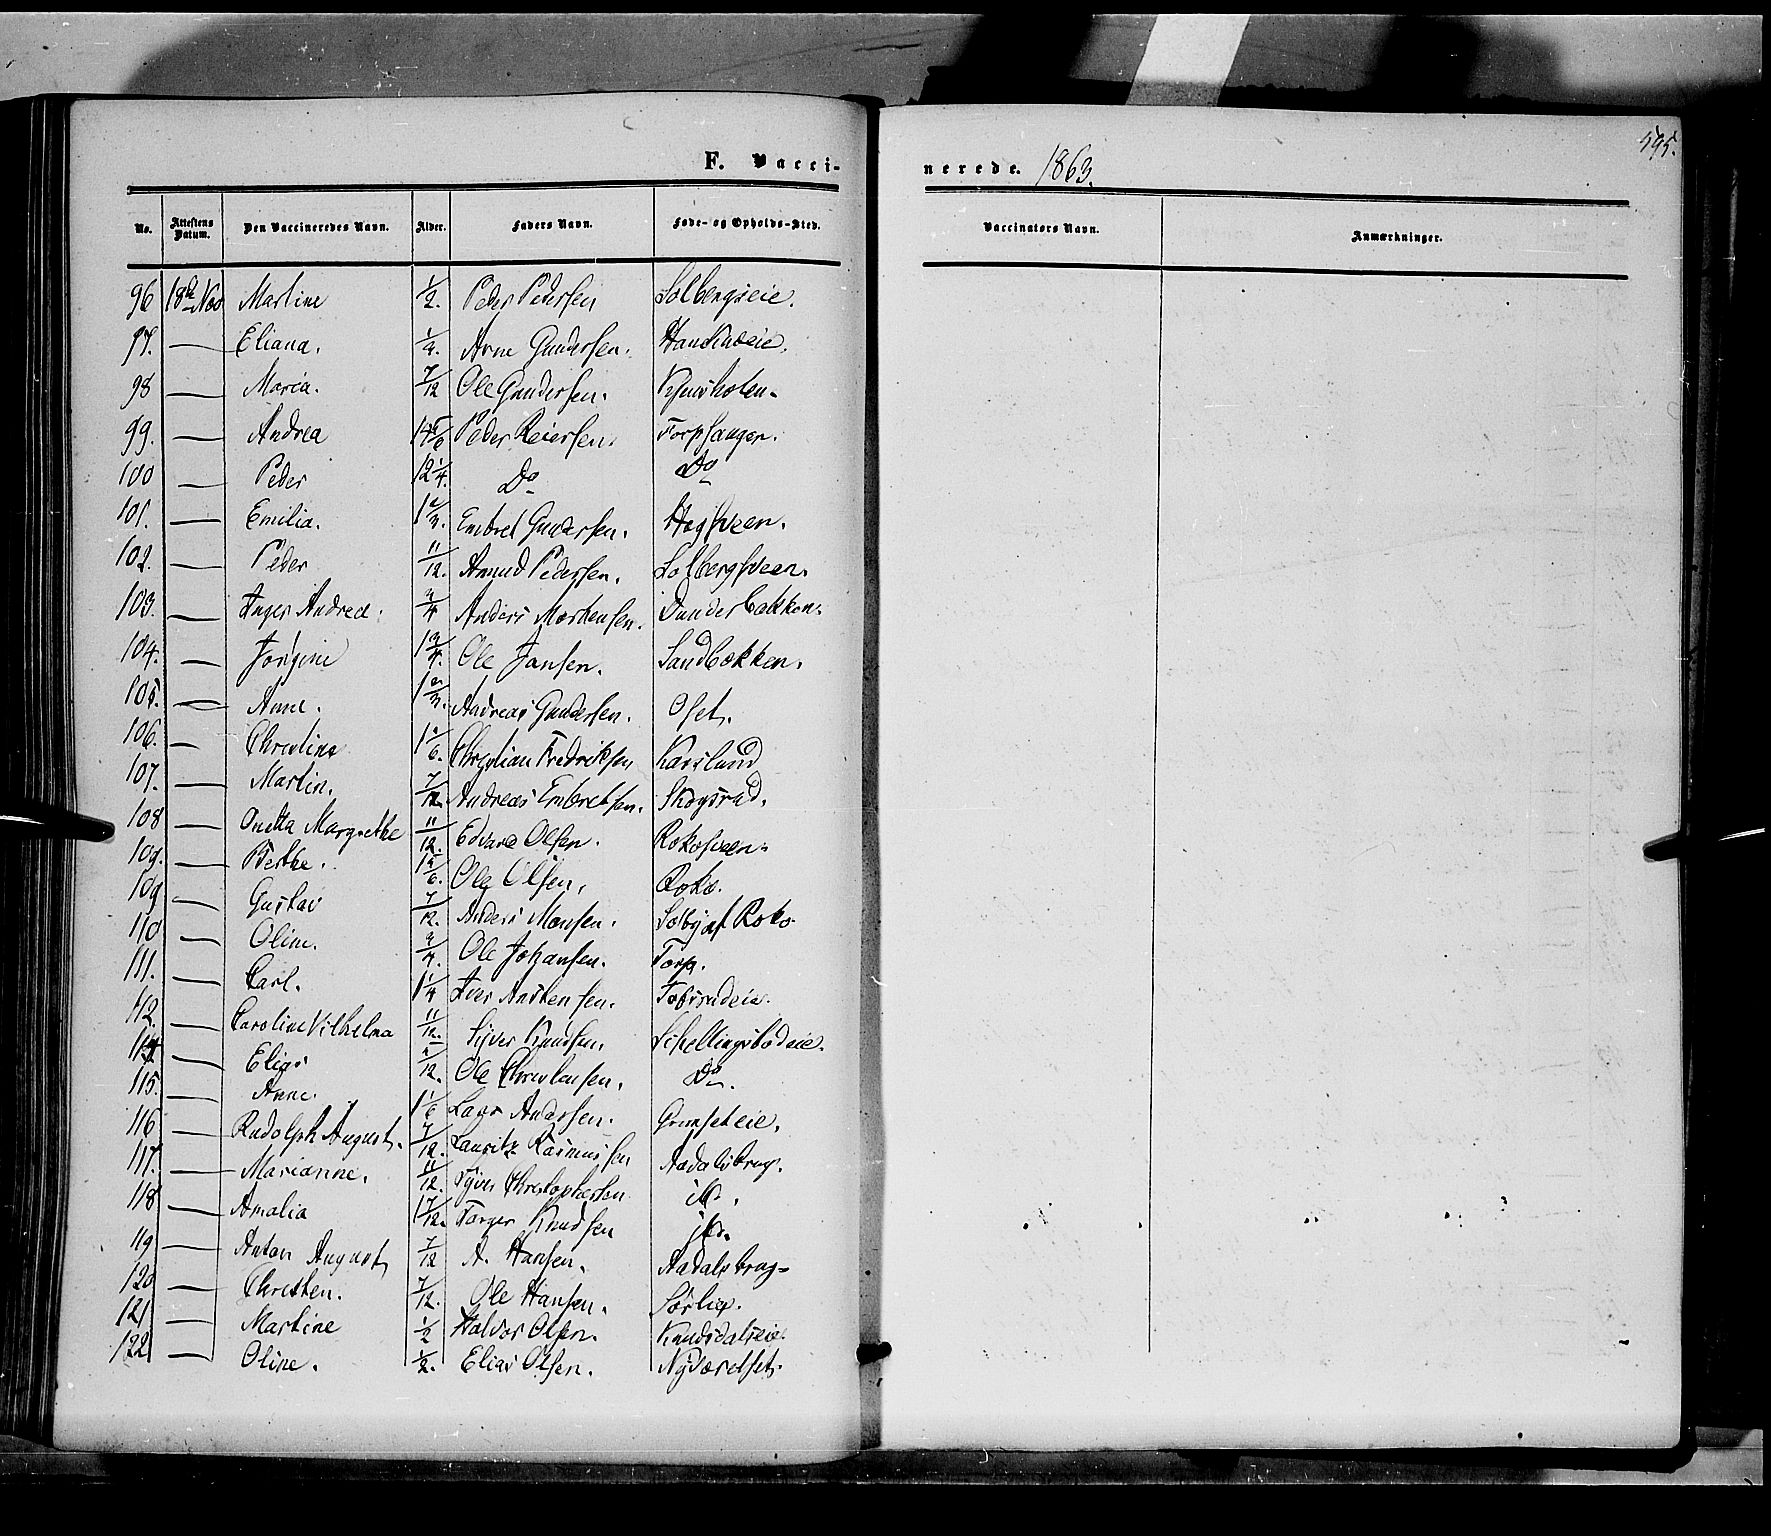 595.
F. Vacci-nerede. 1863.
No. Attestens Datum. Den Vaccineredes Navn. Alder. Faders Navn. Føde- og Opholds-Sted. Vaccinators Navn. Anmærkninger.
96 18de Nov Martine 1/2. Peder Pedersen Solbergseie.
97. — Eliana. 1/4. Arne Gundersen.
98 — Maria. 7/12 Ole Gundersen.
99. — Andrea 14 5/6 Peder Reiersen. Torpsanger.
100 — Peder 12 1/4. Do Do
101. — Emilia. 1 2/3. Embret Gundersen. Hagsveen.
102. — Peder 11/12. Amund Pedersen. Solbergsveen.
103. — Inger Andrea. 3/4 Anders Mortensen. Dunderbakken.
104. — Jørgine 1 3/4. Ole Jansen. Sandbækken.
105. — Anne. 1 2/3. Andreas Gundersen. Oset.
106. — Christine 1 1/6. Christian Fredriksen Karslund
107. — Martin. 7/12. Andreas Embretsen. Skogsrud.
108 — Onetta Margrethe 11/12. Edvard Olsen. Rokosveen.
109. — Berthe. 1 5/6. Ole Olsen. Roko.
109 — Gustav 7/12. Anders Monsen. Solby af Roko
110 — Oline. 3/4. Ole Johansen. Torp.
111. — Carl. 1 1/4 Iver Andersen.
112. — Caroline Vilhelma 11/12. Syver Knudsen. Skellingsbødeie.
114. — Elias 5/12. Ole Christensen. Do.
115. — Anne. 1 1/6 Lars Andersen. Grunseteie.
116 — Rudolph August. 7/12. Lauritz Rasmussen Aadalsbrug.
117. — Marianne. 11/12. Syver Christophersen ib.
118 — Amalia 1 7/12. Torger Knudsen ib.
119 — Anton August 7/12 A. Hansen. Aadalsbrug
120 — Christen. 7/12. Ole Hansen. Sørlia.
121 — Martine 1/2 Halvor Olsen. Knudsdalseie.
122 — Oline. 1/2. Elias Olsen.